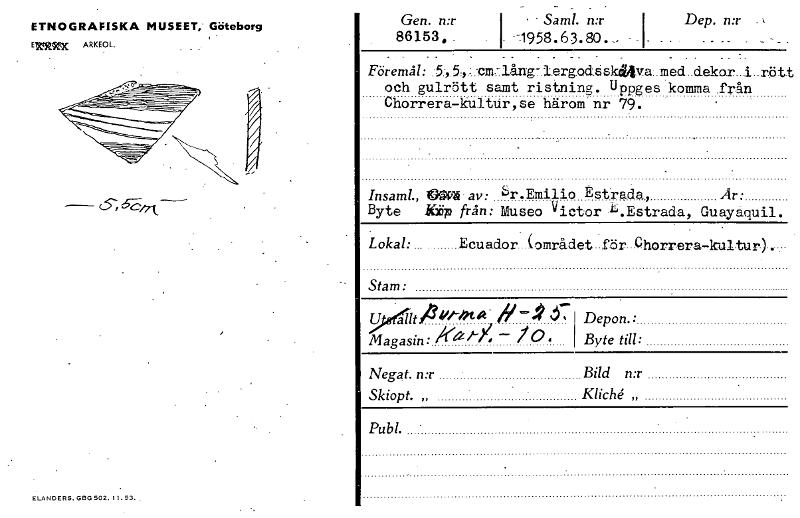 ETNOGRAFISKA MUSEET, Göteborg
ARKEOL.
5,5cm
ELANDERS, GBG 502. 11. 53.
Gen. n:r Saml. n:r Dep. n:r
86153. 1958.63.80.
Föremål: 5,5, cm lång lergodsskärva med dekor i rött
och gulrött samt ristning. Uppges komma från
Chorrera-kultur,se härom nr 79.
Insaml., Gåva av: Sr.Emilio Estrada, År:
Byte Köp från: Museo Victor E.Estrada, Guayaquil.
Lokal: Ecuador (området för Chorrera-kultur).
Stam:
Utställt: Burma H-25. Depon.:
Magasin: Kart.-10. Byte till:
Negat. n:r Bild n:r
Skiopt. „ Kliché „
Publ.